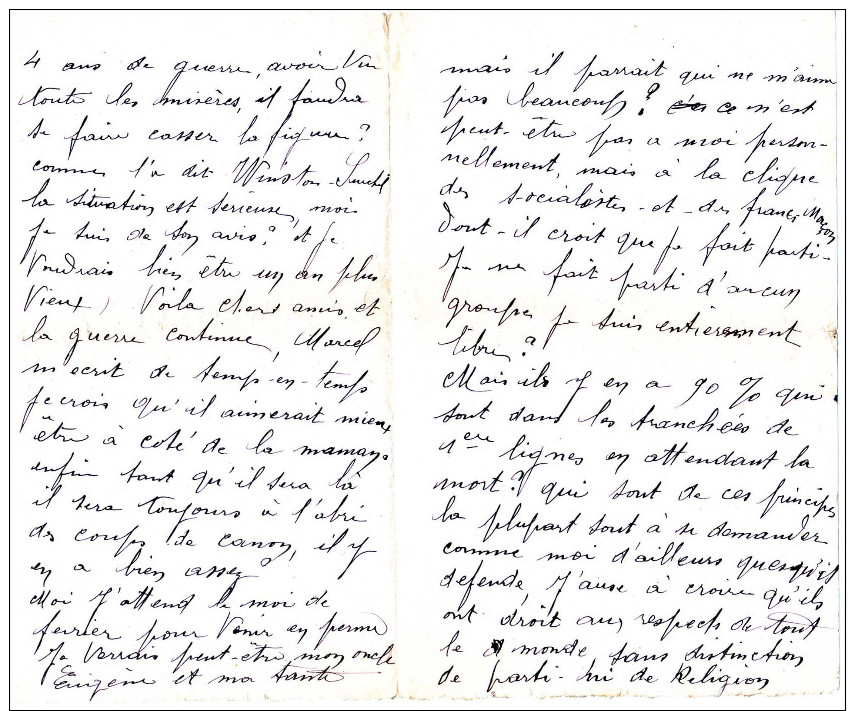 4 ans de guerre, avoir vu
toute les misères, il faudra
se faire casser la figure ?
comme l'a dit Winston-
la situation est serieuse, moi
je suis de son avis ? et je
voudrais bien être un an plus
vieux, Voila chers amis, et
la guerre continue, Marcel
m'ecrit de temps-en-temps
je crois qu'il aimerait mieux
être à coté de la maman,
enfin tant qu'il sera là
il sera toujours à l'abri
des coups de canon, il y
en a bien assez ?
Moi J'attend le moi de
fevrier pour venir en perme
Je verrais peut-etre mon oncle
Eugène et ma tante
mais il parrait qui ne m'aime
pas beaucoup ? ce n'est
peut-être pas a moi person-
nellement, mais à la clique
des socialistes-et-des francs-Maçon
dont-il croit que je fait parti-
Je ne fait parti d'aucun
groupes je suis entierement
libre ?
Mais ils y en a 90 % qui
sont dans les tranchées de
1ere lignes en attendant la
mort ? qui sont de ces principes
la plupart sont à se demander
comme moi d'ailleurs quesqu'il
defende, J'ause à croire qu'ils
ont droit aux respects de tout
le monde sans distinction
de parti-ni de Religion